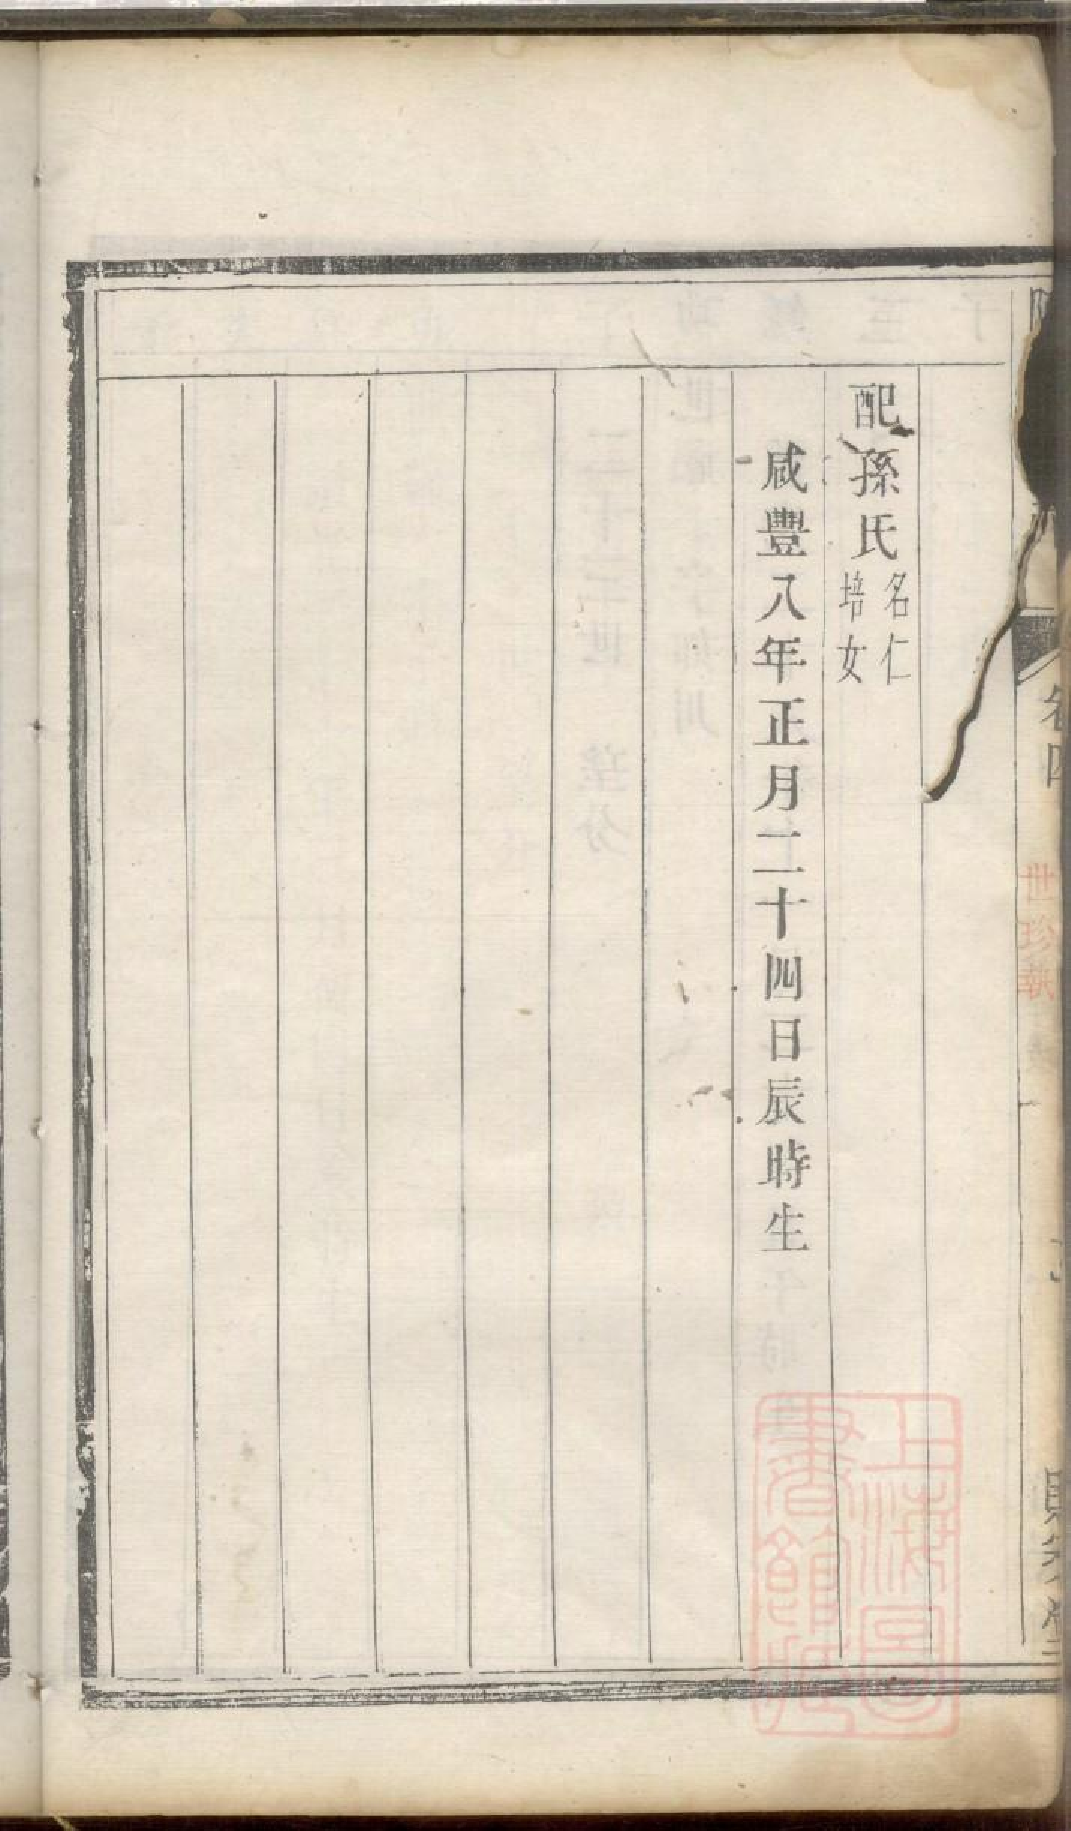 配孫氏名仁培女
咸豐八年正月二十四日辰時生
卷四
世珍執
上海圖書館藏